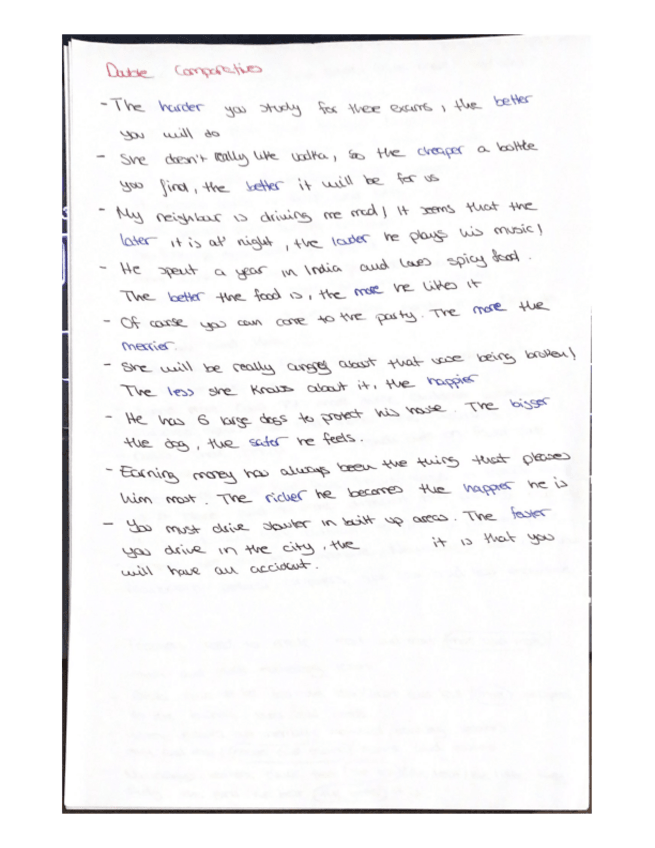 Double Comparatives
- The harder you study for these exams, the better
you will do
- She doesn't really like vodka, so the cheaper a bottle
you find, the better it will be for us
- My neighbour is driving me mad! It seems that the
later it is at night, the louder he plays his music!
- He spent a year in India and loves spicy food.
The better the food is, the more he likes it
- Of course you can come to the party. The more the
merrier.
- She will be really angry about that vase being broken!
The less she knows about it, the happier
- He has 6 large dogs to protect his house. The bigger
the dog, the safer he feels.
- Earning money has always been the thing that pleases
him most. The richer he becomes the happier he is
- You must drive slower in built up areas. The faster
you drive in the city, the it is that you
will have an accident.